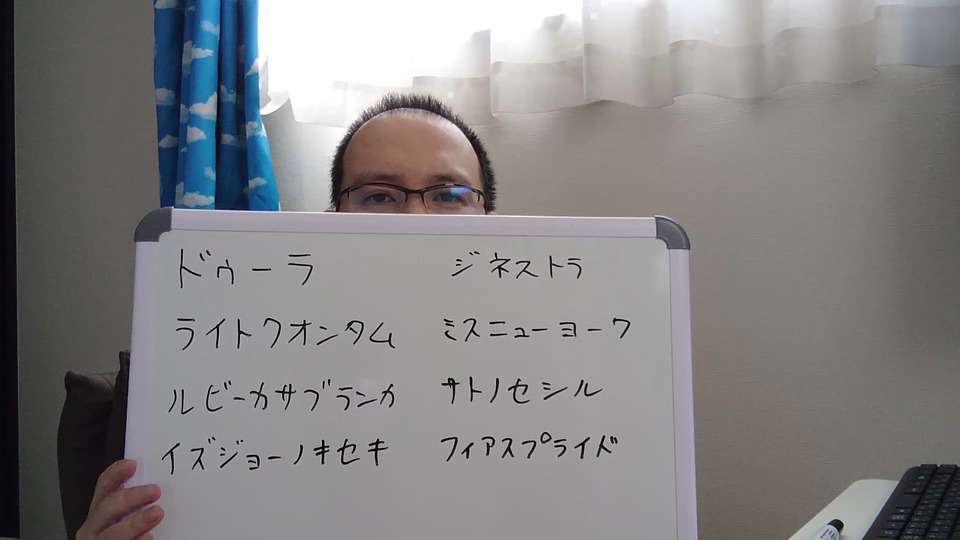 ドゥーラ
ライトクオンタム
ルビーカサブランカ
イズジョーノキセキ
ジネストラ
ミスニューヨーク
サトノセシル
フィアスプライド